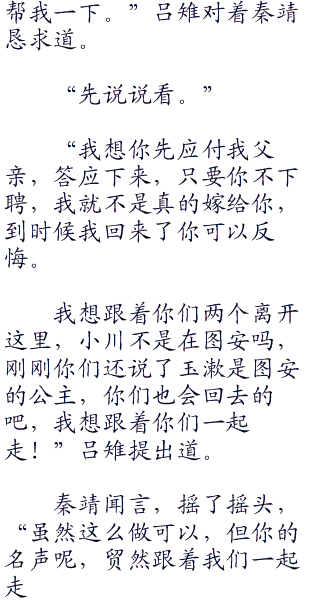 帮我一下。”吕雉对着秦靖
恳求道。
“先说说看。”
“我想你先应付我父
亲，答应下来，只要你不下
聘，我就不是真的嫁给你，
到时候我回来了你可以反
悔。
我想跟着你们两个离开
这里，小川不是在图安吗，
刚刚你们还说了玉漱是图安
的公主，你们也会回去的
吧，我想跟着你们一起
走！”吕雉提出道。
秦靖闻言，摇了摇头，
“虽然这么做可以，但你的
名声呢，贸然跟着我们一起
走